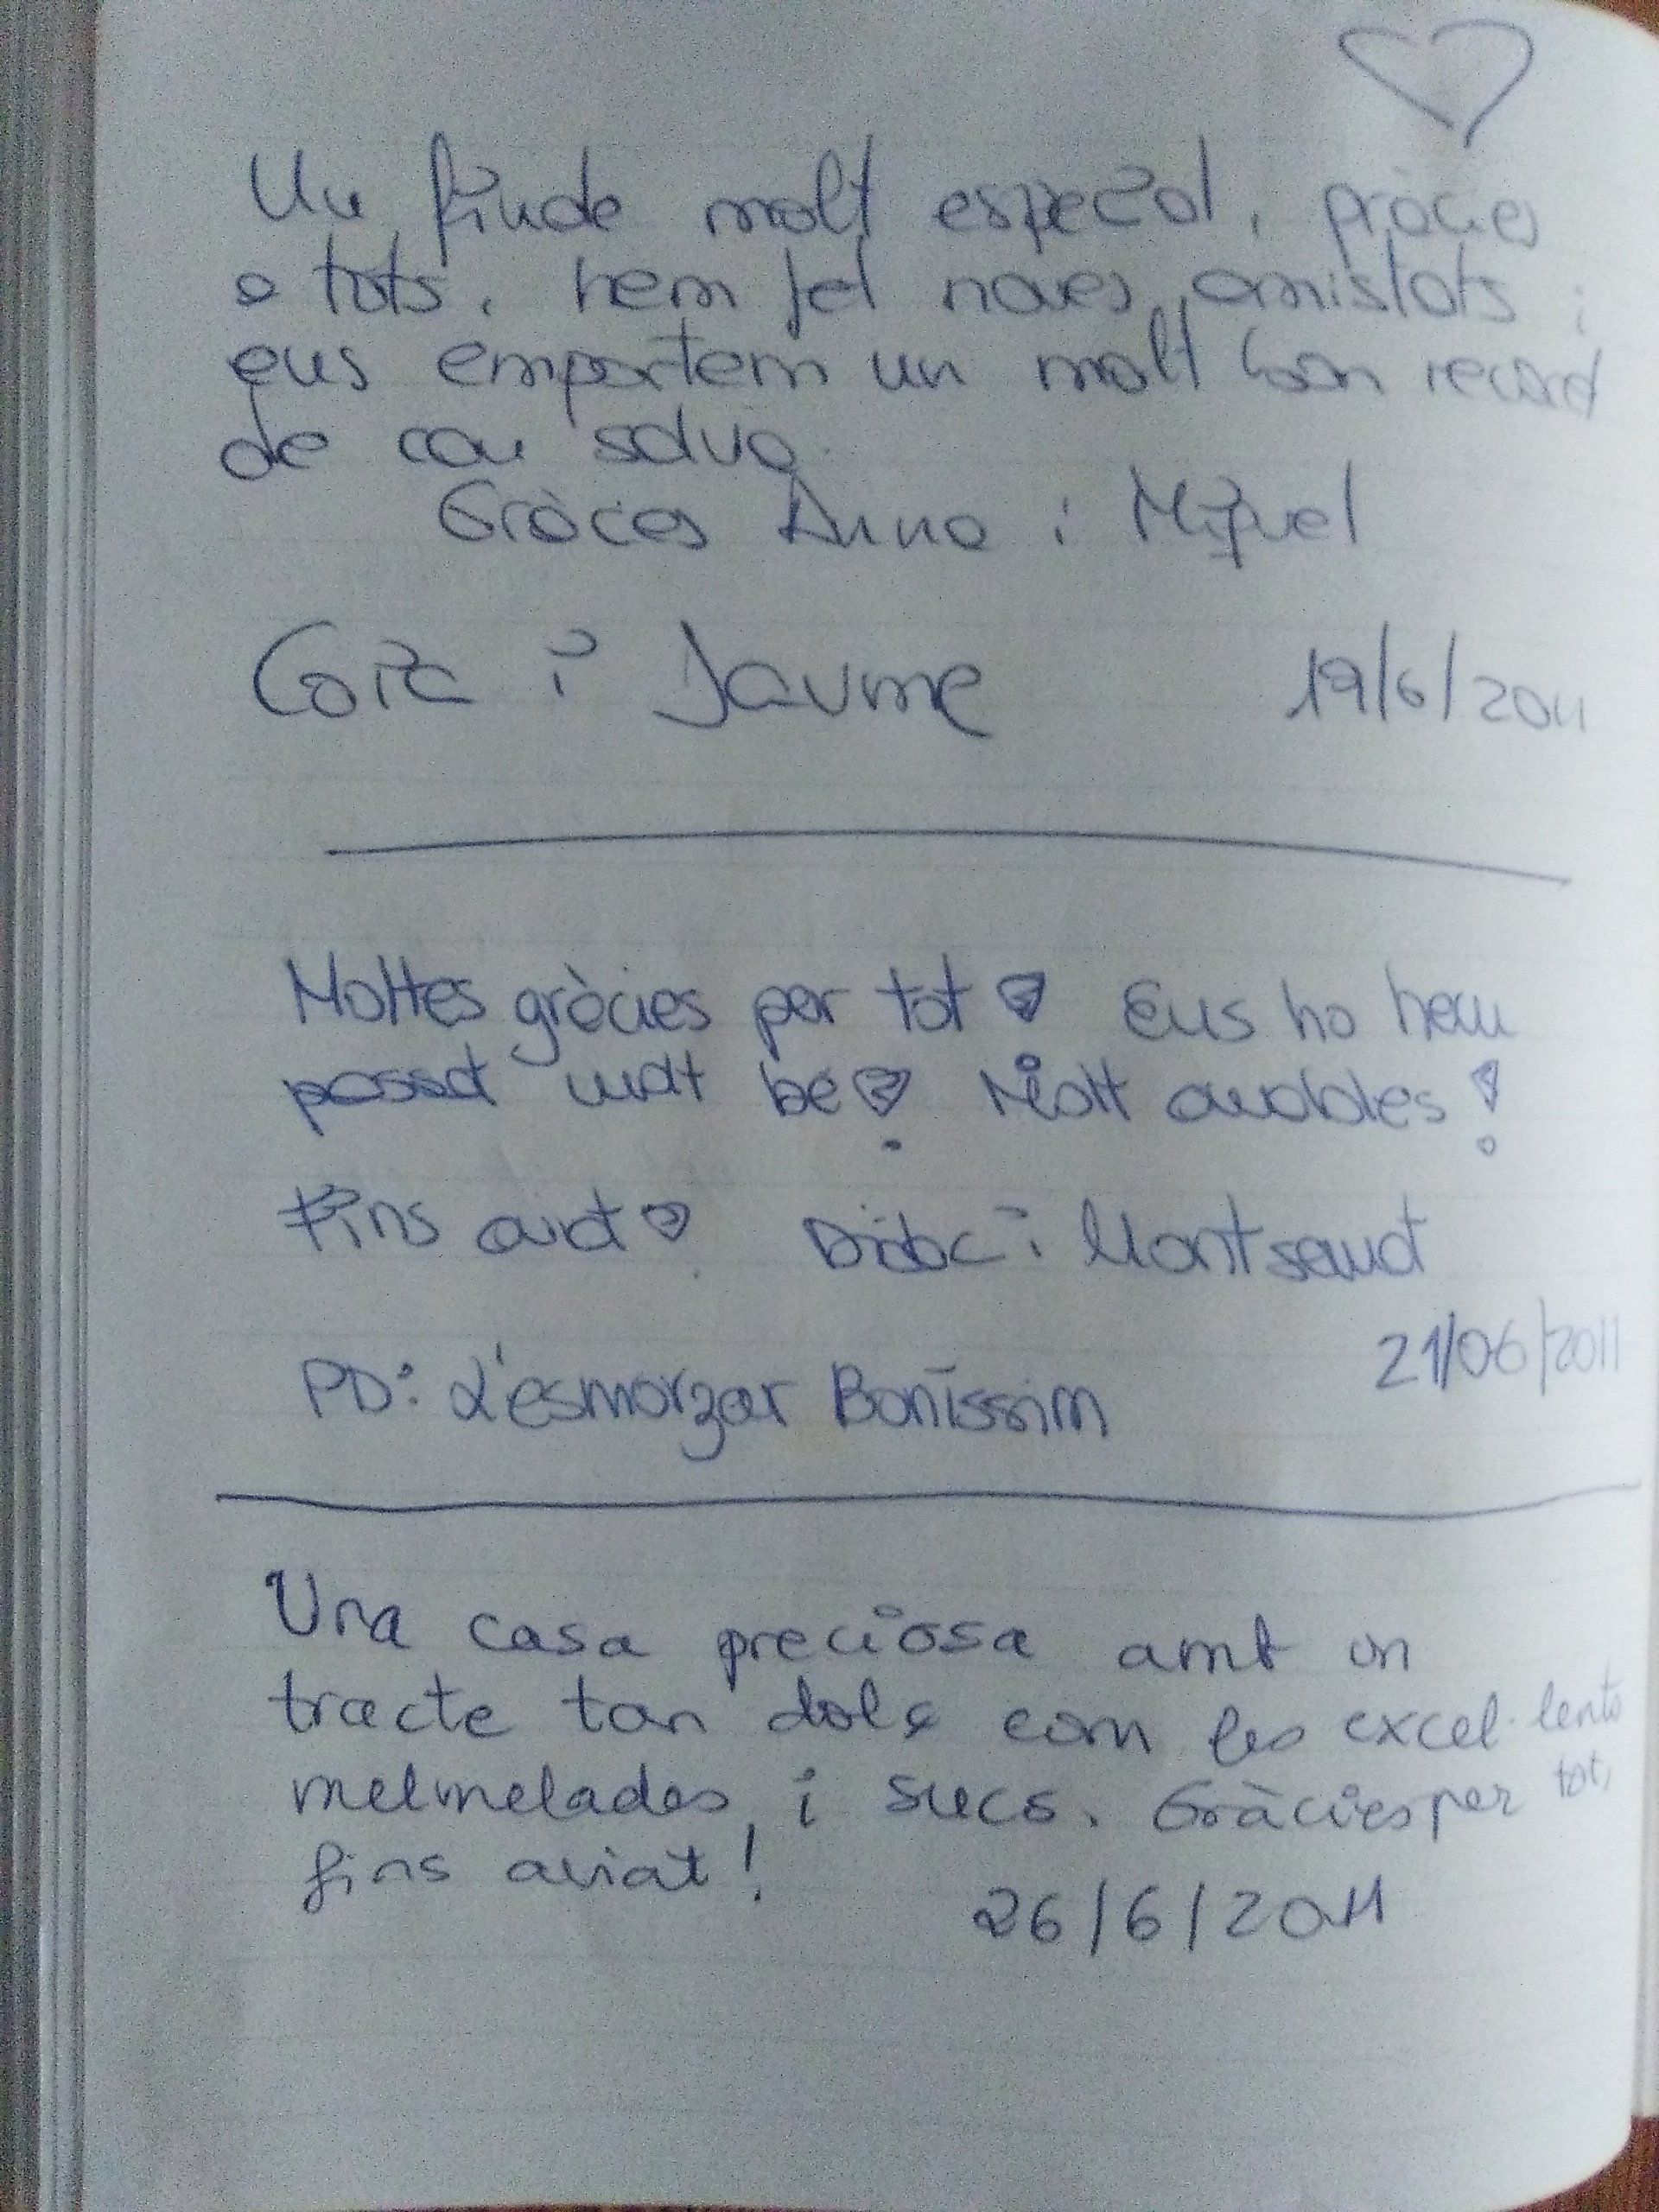 Un finde molt especial, gràcies
a tots, hem fet noves amistats i
ens emportem un molt bon record
de can salva.
Gràcies Anna i Miquel
i Jaume 19/6/2011
Moltes gràcies per tot Ens ho hem
passat molt bé! Molt amables!
Fins aviat Dídac i Montserrat
21/06/2011
PD: L'esmorzar Boníssim
Una casa preciosa amb un
tracte tan dolç com les excel·lents
melmelades i sucs. Gràcies per tot,
fins aviat!
26/6/2011